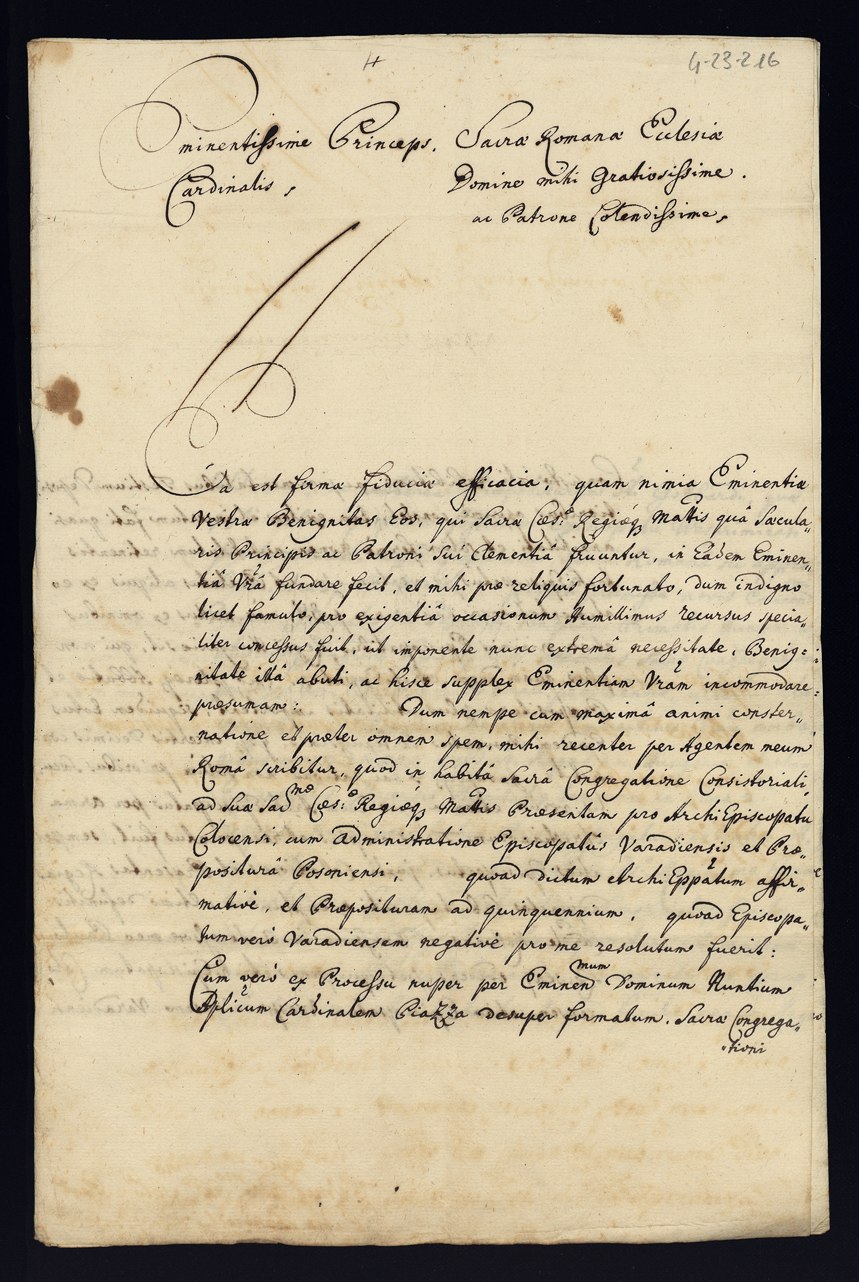 4-23-216
Eminentissime Princeps. Sacræ Romanæ Ecclesiæ
Cardinalis, Domine mihi Gratiosissime.
ac Patrone Colendissime,
Ea est formæ fiduciæ efficacia, quam nimia Eminentiæ
Vestræ Benignitas Eos, qui Sacræ Cæs: Regiæq Mattis quâ Sæcula„
ris Principis ac Patroni sui Clementiâ fruuntur, in Eadem Eminen„
tiâ Vrâ fundare fecit, et mihi præ reliquis fortunato, dum indigno
licet famulo, pro exigentiâ occasionum Humillimus recursus specia„
liter concessus fuit, ut imponente nunc extremâ necessitate, Benig„
nitate illâ abuti, ac hisce supplex Eminentiam Vram incommodare
præsumam: Dum nempe cum maximâ animi conster„
natione et præter omnem spem, mihi recenter per Agentem meum
Româ scribitur, quod in habitâ Sacrâ Congregatione Consistoriali,
ad Suæ Sacmæ Cæs: Regiæq Mattis Præsentam pro ArchiEpiscopatu
Colocensi, cum Administratione Episcopatûs Varadiensis et Præ„
positurâ Posoniensi, quoad dictum ArchiEppatum affir„
mativè, et Præposituram ad quinquennium, quoad Episcopa„
tum verò Varadiensem negativè pro me resolutum fuerit:
Cum verò ex Processu nuper per Eminendmum Dominum Nuntium
Aplicum Cardinalem Piazza desuper formatum, Sacræ Congrega„
„tioni